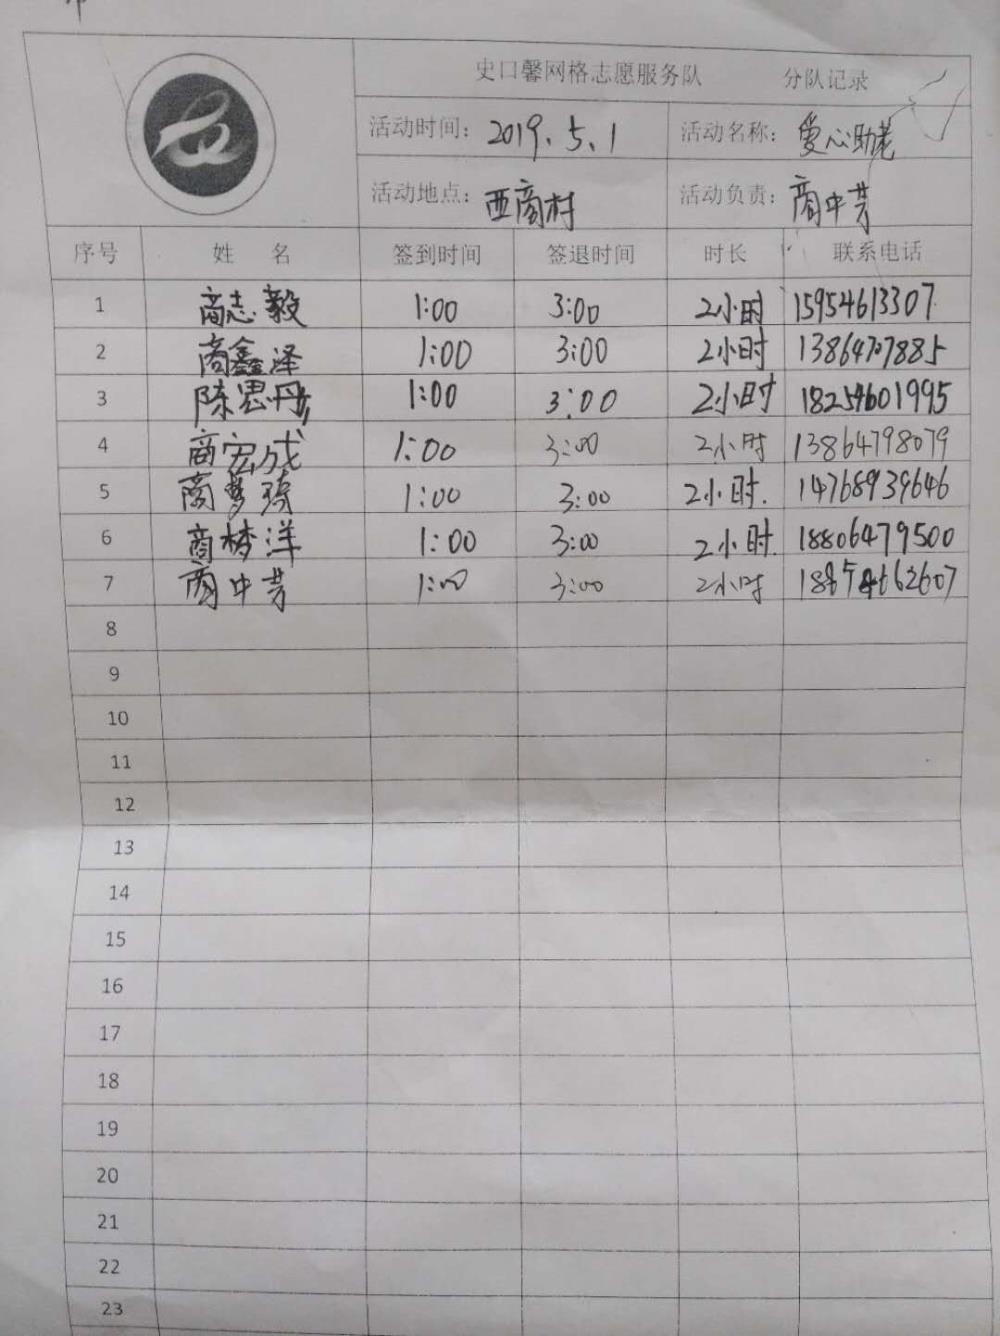 史口馨网格志愿服务队 分队记录
活动时间: 2019.5.1 活动名称: 爱心助老
活动地点: 西商村 活动负责: 商中芳
序号 姓 名 签到时间 签退时间 时长 联系电话
1 商志毅 1:00 3:00 2小时 15954613307
2 商鑫泽 1:00 3:00 2小时 13864707885
3 陈思丹 1:00 3:00 2小时 18254601995
4 商宏成 1:00 3:00 2小时 13864798079
5 商梦琦 1:00 3:00 2小时. 14768939646
6 商梦洋 1:00 3:00 2小时. 18806479500
7 商中芳 1:00 3:00 2小时
8
9
10
11
12
13
14
15
16
17
18
19
20
21
22
23